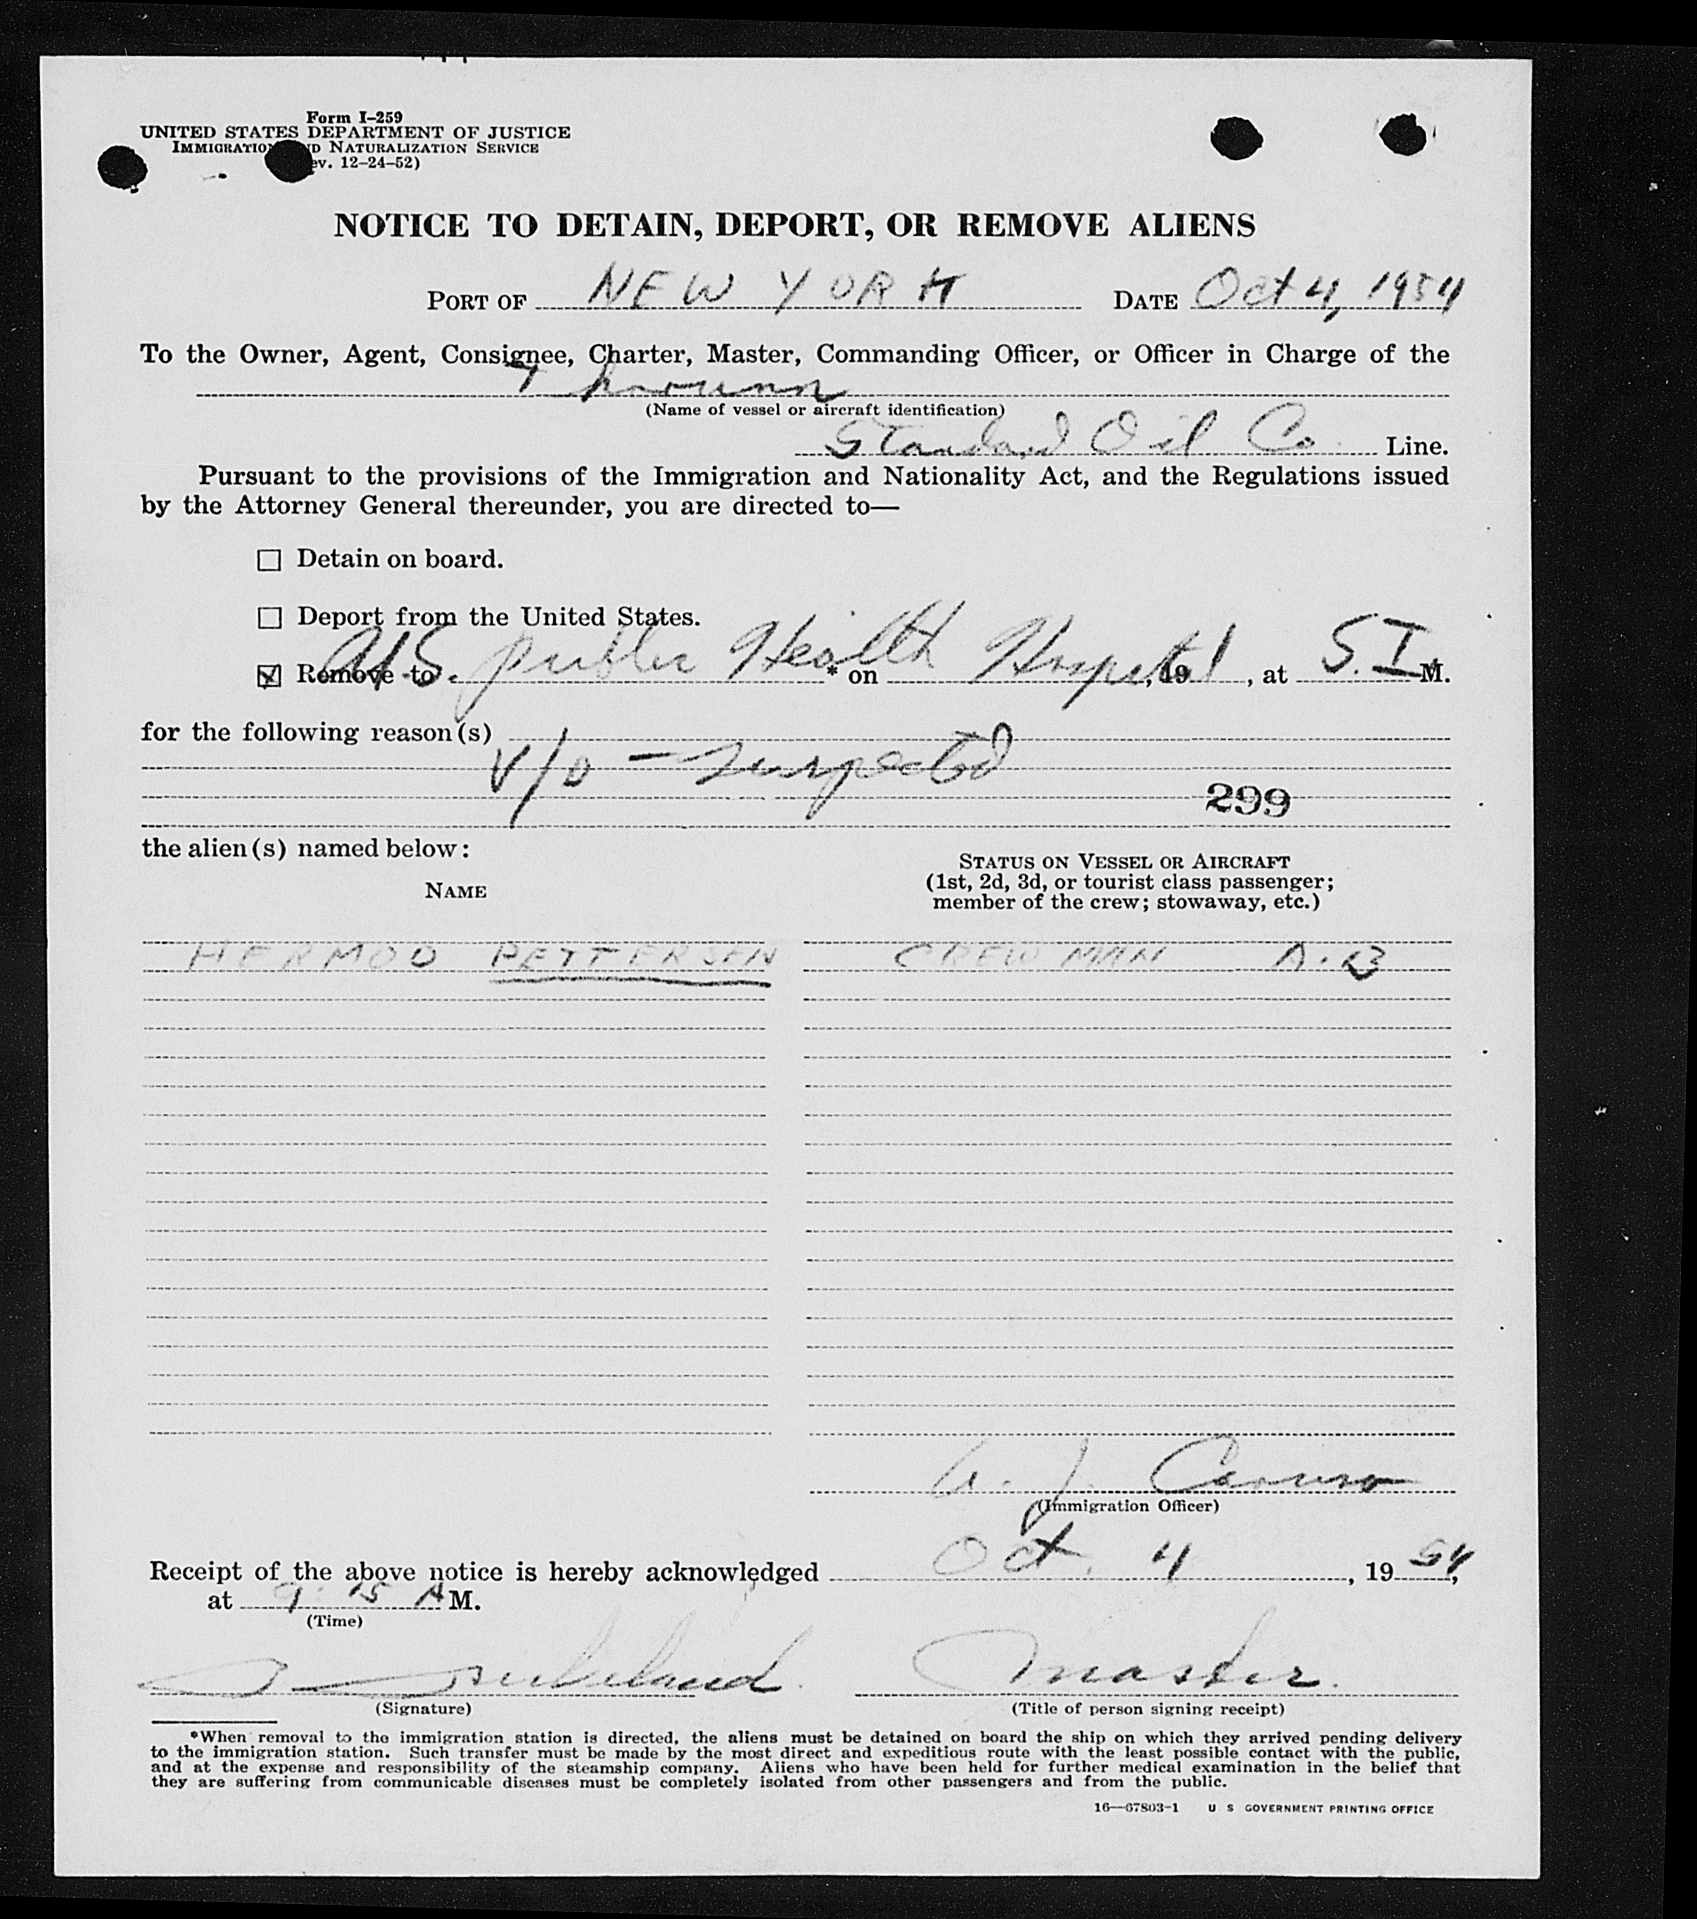 Form I-259
UNITED STATES DEPARTMENT OF JUSTICE
IMMIGRATION AND NATURALIZATION SERVICE
(Rev. 12-24-52)
NOTICE TO DETAIN, DEPORT, OR REMOVE ALIENS
PORT OF NEW YORK DATE Oct 4, 1954
To the Owner, Agent, Consignee, Charter, Master, Commanding Officer, or Officer in Charge of the
(Name of vessel or aircraft identification)
Standard Oil Co. Line.
Pursuant to the provisions of the Immigration and Nationality Act, and the Regulations issued
by the Attorney General thereunder, you are directed to—
☐ Detain on board.
☐ Deport from the United States.
☒ Remove to U.S. Public Health * on Hospital, 19, at S.I. M.
for the following reason(s)
V/D - suspected
299
the alien(s) named below:
NAME
STATUS ON VESSEL OR AIRCRAFT
(1st, 2d, 3d, or tourist class passenger;
member of the crew; stowaway, etc.)
HERMOD PETTERSEN CREWMAN A.B
A. J. Caruso
(Immigration Officer)
Receipt of the above notice is hereby acknowledged Oct. 4, 1954,
at 9:15 A M.
(Time)
Master.
(Signature) (Title of person signing receipt)
*When removal to the immigration station is directed, the aliens must be detained on board the ship on which they arrived pending delivery
to the immigration station. Such transfer must be made by the most direct and expeditious route with the least possible contact with the public,
and at the expense and responsibility of the steamship company. Aliens who have been held for further medical examination in the belief that
they are suffering from communicable diseases must be completely isolated from other passengers and from the public.
16—67803-1 U S GOVERNMENT PRINTING OFFICE